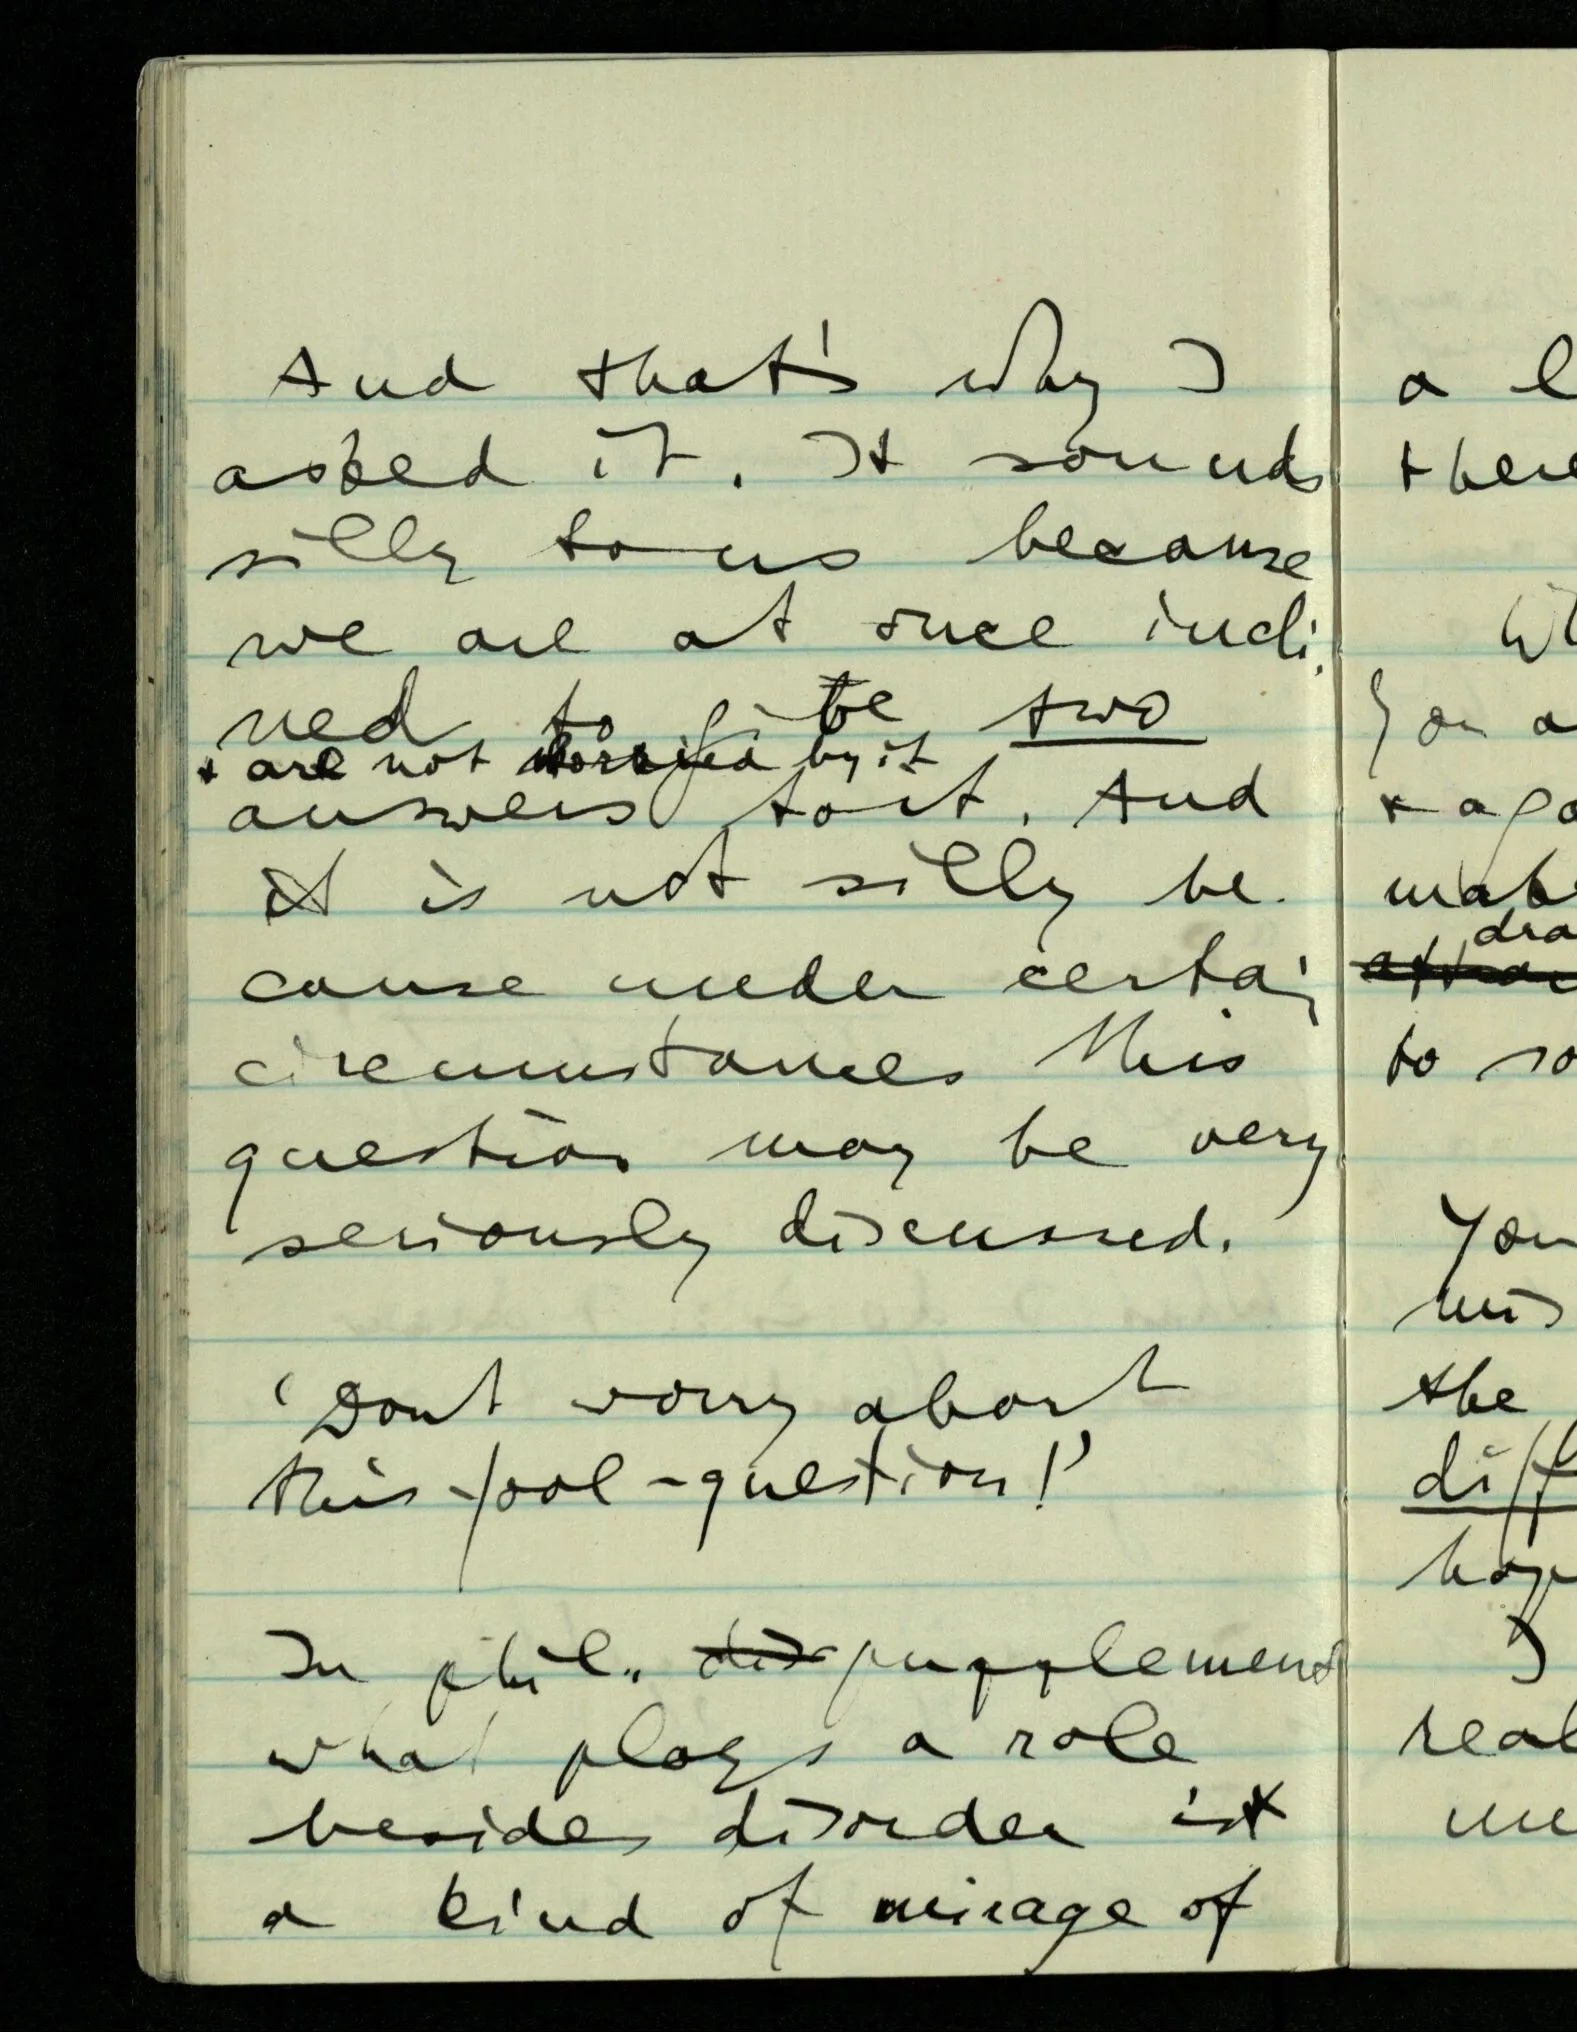 And that's why I
asked it. It sounds
silly to us because
we are at once incli-
ned to give two
+ are not by it
answers to it. And
it is not silly be-
cause under certain
circumstances this
question may be very
seriously discussed.
'Dont worry about
this fool-question!'
In phil. dis pupplement
what plays a role
besides disorder is
a kind of mirage of
a
there
You a
+ aga
make
dra
to so
You
mis
the
diff
hop
I
real
me